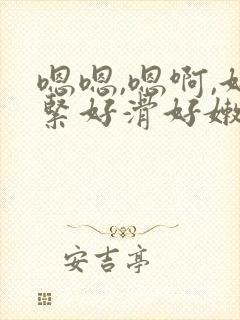 嗯嗯,嗯啊,好
紧好滑好嫩
安吉亭